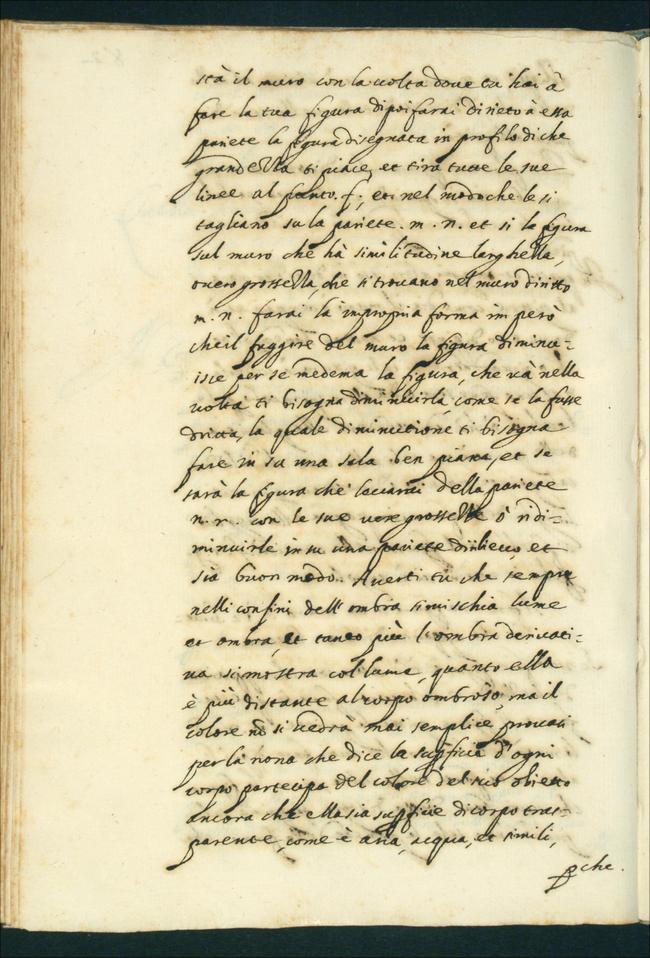 stà il muro con la uolta doue tu hai à
fare la tua figura dipoi farai dirieto à essa
pariete la figura disegnata in profilo di che
grandezza ti piace, et tira tutte le sue
linee al punto. f; et nel modo che le si
tagliano su la pariete. m. n. et si la figura
sul muro che hà similitudine larghella,
ouero grossella, che si trouano nel muro diritto
m. n. farai la impropria forma imperò
che il fuggire del muro la figura diminu=
isce per se medema la figura, che uà nella
uolta ti bisogna diminuirla, come se la fusse
dritta, la quale diminutione ti bisogna
fare in su una sala ben piana, et se
sarà la figura che leuarai della pariete
n. r. con le sue uere grosselle ò ridi=
minuirle in su una pariete di riliecuo, et
sia buon modo. Auerti tu che sempre
nelli confini dell' ombra si mischia lume
et ombra, et tanto più l'ombra deriuati=
ua si mostra col lume, quanto ella
è più distante al corpo ombroso, ma il
colore nõ si uedrà mai semplice prouasi
per la nona che dice la supficia d'ogni
corpo partecipa del colore del suo obietto
ancora che ella sia supficie di corpo tras=
parente, come è aria, acqua, et simili,
pche.